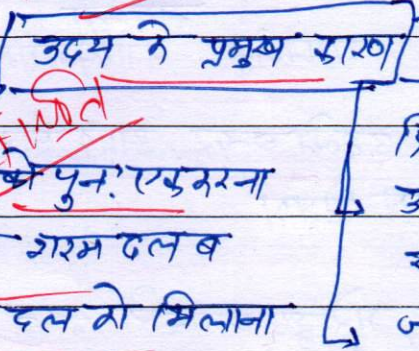 उदय के प्रमुख कारण
को पुनः एक करना
गरम दल व
दल को मिलाना